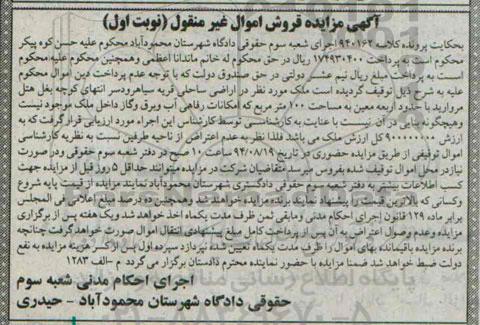 آگهی مزایده فروش اموال غیر منقول (نوبت اول)
بحکایت پرونده کلاسه ۹۴۰۱۶۲ اجرای شعبه سوم حقوقی دادگاه شهرستان محمودآباد محکوم علیه حسن کوه پیکر
محکوم است به پرداخت ۱۷۴۹۳۰۴۰۰ ریال در حق محکوم له خانم ماندانا اعظمی وهمچنین محکوم علیه محکوم
است به پرداخت مبلغ ریال نیم عشر دولتی در حق صندوق دولت که با توجه عدم پرداخت دین اموال محکوم
علیه به شرح ذیل توقیف گردیده است ملک مورد نظر در اراضی ساحلی قریه سیاهرودسر انتهای کوچه بغل هتل
مروارید با حدود اربعه معین به مساحت ۱۰۰ متر مربع که امکانات رفاهی آب وبرق وگاز داخل ملک موجود نیست
وهیچگونه بنایی در آن نیست با عنایت به کارشناسی توسط کارشناس این اجراء مورد ارزیابی قرار گرفت که به
ارزش ۹۰۰۰۰۰۰۰۰ کل ارزش ملک می باشد فلذا نظر به عدم اعتراض از ناحیه طرفین نسبت به نظریه کارشناسی
اموال توقیفی از طریق مزایده حضوری در تاریخ ۹۴/۰۸/۱۹ ساعت ۱۰ صبح در دفتر شعبه سوم حقوقی ودر صورت
نیاز در محل اموال توقیف شده بفروس میرسد متقاضیان شرکت در مزایده میتوانند حداقل ۵ روز قبل از مزایده جهت
کسب اطلاعات بیشتر به دفتر شعبه سوم حقوقی دادگستری شهرستان محمودآباد نمایند مزایده از قیمت پایه شروع
وکسانی که بالاترین قیمت را پیشنهاد نمایند برنده مزایده خواهند شد وهمچنین ده درصد مبلغ اعلامی فی المجلس
برابر ماده ۱۲۹ قانون اجرای احکام مدنی ومابقی ثمن ظرف مدت یکماه اخذ خواهد شد ویک هفته پس از برگزاری
مزایده وعدم وصول اعتراضی به آن پس از پرداخت کامل مبلغ پیشنهادی انتقال اموال صورت خواهد گرفت چنانچه
برنده مزایده باقیمانده بهای اموال را ظرف مدت یکماه تعیین شده نپردازد سپرده اول پس از کسر هزینه مزایده به نفع
دولت ضبط خواهد شد ضمنا مزایده با حضور نماینده محترم دادستان برگزار می گردد م –الف ۱۲۸۳
اجرای احکام مدنی شعبه سوم
حقوقی دادگاه شهرستان محمودآباد - حیدری